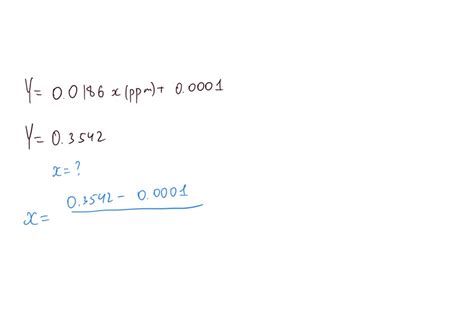 Y= 0.0186 x (ppm) + 0.0001
Y= 0.3542
x= ?
0.3542 - 0.0001
x=